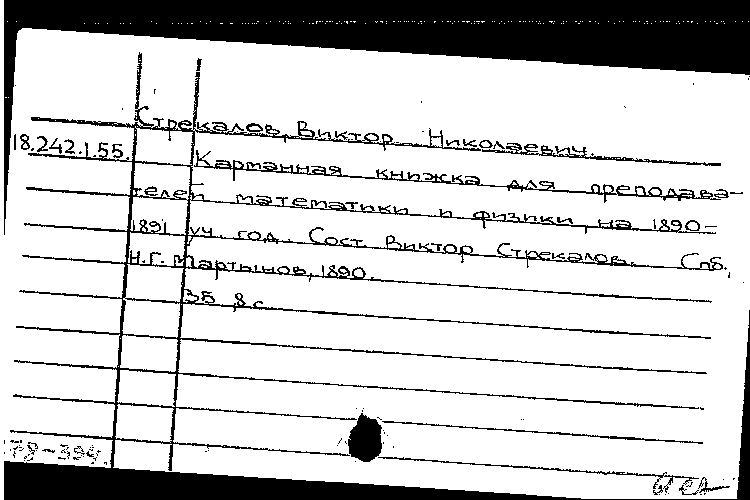 Стрекалов, Виктор Николаевич.
18.242.1.55. Карманная книжка для преподава-
телей математики и физики, на 1890-
1891 уч. год. Сост. Виктор Стрекалов. Спб.,
Н.Г. Мартынов, 1890.
35, 8 с.
78-394.